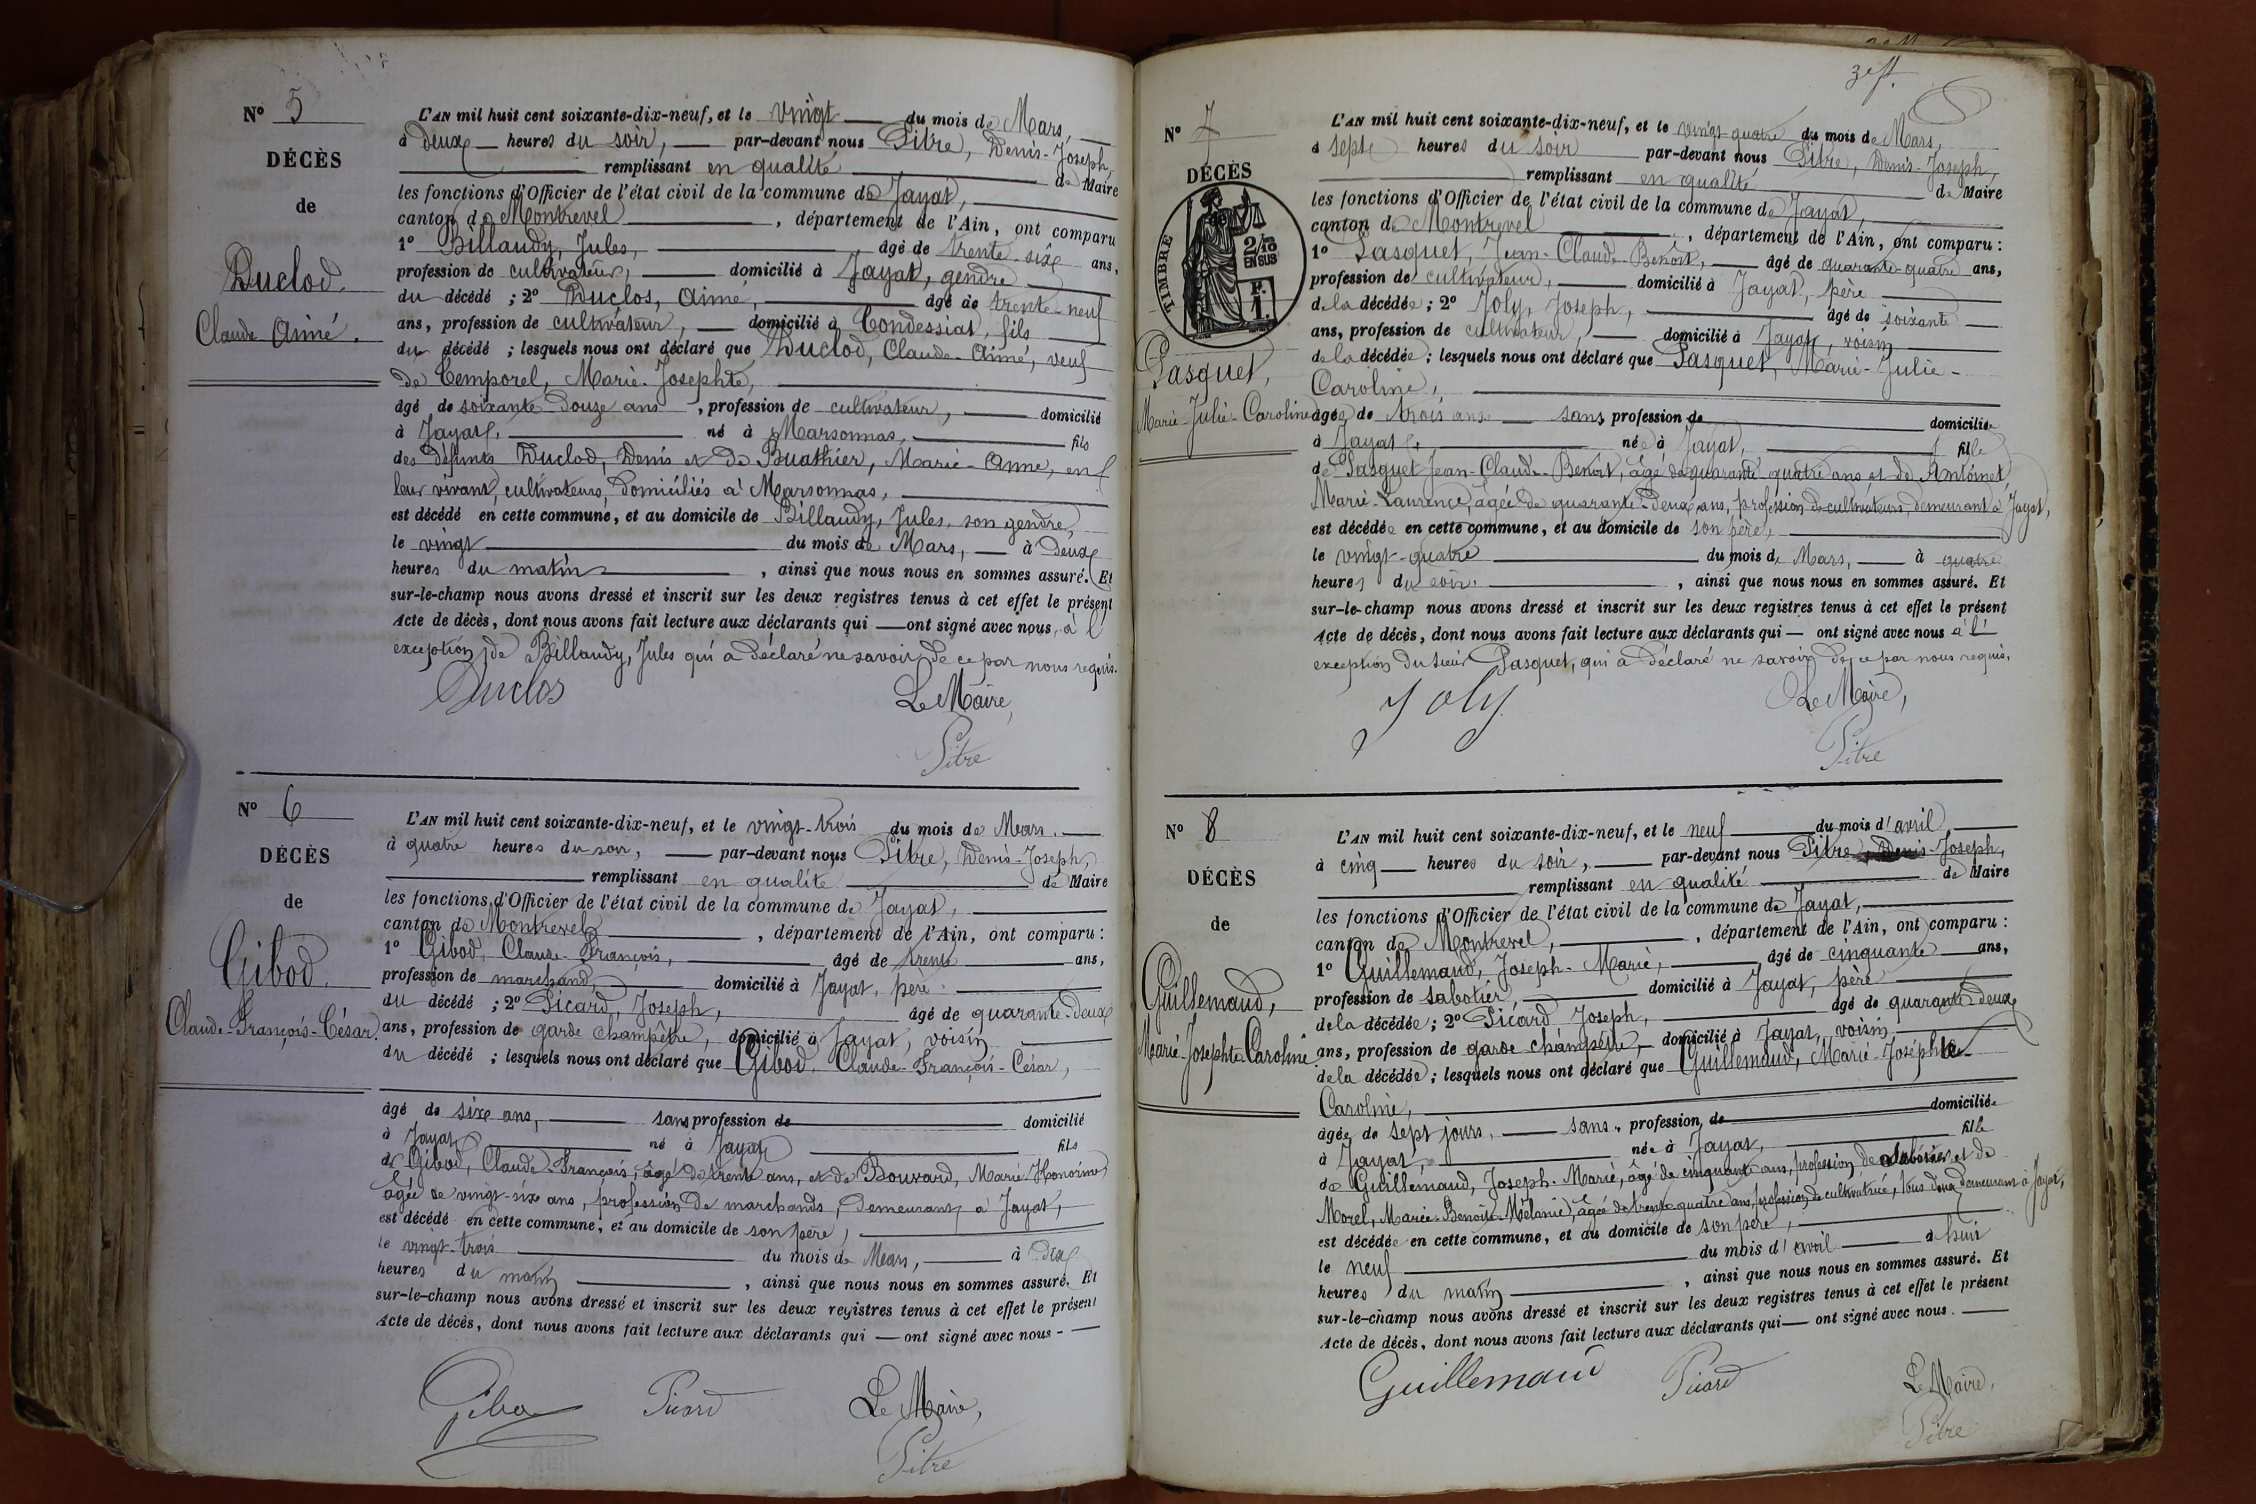 Nº 5
DÉCÈS
de
Duclos.
Claude Aimé.
L'AN mil huit cent soixante-dix-neuf, et le vingt du mois de Mars,
à deux heures du soir, par-devant nous Pitre, Denis-Joseph,
remplissant en qualité de Maire
les fonctions d'Officier de l'état civil de la commune de Jayat,
canton de Montrevel, département de l'Ain, ont comparu
1º Billaudy, Jules, âgé de trente-six ans,
profession de cultivateur, domicilié à Jayat, gendre
du décédé ; 2º Duclos, Aimé, âgé de trente-neuf
ans, profession de cultivateur, domicilié à Condessiat, fils
du décédé ; lesquels nous ont déclaré que Duclos, Claude-Aimé, veuf
de Temporel, Marie-Josephte,
âgé de soixante-douze ans, profession de cultivateur, domicilié
à Jayat, né à Marsonnas, fils
des défunts Duclos, Denis et de Buathier, Marie-Anne, en
leur vivant, cultivateurs, domiciliés à Marsonnas,
est décédé en cette commune, et au domicile de Billaudy, Jules, son gendre
le vingt du mois de Mars, à deux
heures du matin, ainsi que nous nous en sommes assuré. Et
sur-le-champ nous avons dressé et inscrit sur les deux registres tenus à cet effet le présent
Acte de décès, dont nous avons fait lecture aux déclarants qui ont signé avec nous, à l'
exception de Billaudy, Jules qui a déclaré ne savoir de ce par nous requis.
Duclos
Le Maire,
Pitre
Nº 6
DÉCÈS
de
Gibod.
Claude-François-César.
L'AN mil huit cent soixante-dix-neuf, et le vingt-trois du mois de Mars.
à quatre heures du soir, par-devant nous Pitre, Denis-Joseph,
remplissant en qualité de Maire
les fonctions d'Officier de l'état civil de la commune de Jayat,
canton de Montrevel, département de l'Ain, ont comparu :
1º Gibod, Claude-François, âgé de trente ans,
profession de marchand, domicilié à Jayat, père
du décédé ; 2º Picard, Joseph, âgé de quarante-deux
ans, profession de garde champêtre, domicilié à Jayat, voisin
du décédé ; lesquels nous ont déclaré que Gibod, Claude-François-César,
âgé de six ans, sans profession de domicilié
à Jayat né à Jayat fils
de Gibod, Claude-François, âgé de trente ans, et de Bouvard, Marie-Honorine
âgée de vingt-six ans, profession de marchands, demeurant à Jayat,
est décédé en cette commune, et au domicile de son père,
le vingt-trois du mois de Mars, à dix
heures du matin, ainsi que nous nous en sommes assuré. Et
sur-le-champ nous avons dressé et inscrit sur les deux registres tenus à cet effet le présent
Acte de décès, dont nous avons fait lecture aux déclarants qui ont signé avec nous
Picard
Le Maire,
Pitre
Nº 7
DÉCÈS
TIMBRE
2/10
EN SUS
F.
1.
Pasquet,
Marie-Julie-Caroline
L'AN mil huit cent soixante-dix-neuf, et le vingt-quatre du mois de Mars,
à sept heures du soir par-devant nous Pitre, Denis-Joseph,
remplissant en qualité de Maire
les fonctions d'Officier de l'état civil de la commune de Jayat,
canton de Montrevel, département de l'Ain, ont comparu :
1º Pasquet, Jean-Claude-Benoît, âgé de quarante-quatre ans,
profession de cultivateur, domicilié à Jayat, père
de la décédée ; 2º Joly, Joseph, âgé de soixante
ans, profession de cultivateur, domicilié à Jayat, voisin
de la décédée ; lesquels nous ont déclaré que Pasquet, Marie-Julie-
Caroline,
âgée de trois ans sans profession de domiciliée
à Jayat, née à Jayat, fille
de Pasquet Jean-Claude-Benoît, âgé de quarante-quatre ans et de Antoinet
Marie-Laurence, âgée de quarante-deux ans, profession de cultivateurs, demeurant à Jayat,
est décédée en cette commune, et au domicile de son père,
le vingt-quatre du mois de Mars, à quatre
heures du soir, ainsi que nous nous en sommes assuré. Et
sur-le-champ nous avons dressé et inscrit sur les deux registres tenus à cet effet le présent
Acte de décès, dont nous avons fait lecture aux déclarants qui ont signé avec nous à l'
exception du sieur Pasquet, qui a déclaré ne savoir de ce par nous requis.
Joly
Le Maire,
Pitre
Nº 8
DÉCÈS
de
Guillemaud,
Marie-Josephte-Caroline
L'AN mil huit cent soixante-dix-neuf, et le neuf du mois d'avril
à cinq heures du soir, par-devant nous Pitre, Denis-Joseph,
remplissant en qualité de Maire
les fonctions d'Officier de l'état civil de la commune de Jayat,
canton de Montrevel, département de l'Ain, ont comparu :
1º Guillemaud, Joseph-Marie, âgé de cinquante ans,
profession de sabotier, domicilié à Jayat, père
de la décédée ; 2º Picard Joseph, âgé de quarante-deux
ans, profession de garde champêtre, domicilié à Jayat, voisin
de la décédée ; lesquels nous ont déclaré que Guillemaud, Marie-Josephte-
Caroline,
âgée de sept jours, sans profession de domiciliée
à Jayat, née à Jayat, fille
de Guillemaud, Joseph-Marie, âgé de cinquante ans, profession de sabotier et de
Morel, Marie-Benoite-Mélanie, âgée de trente-quatre ans, profession de cultivatrice, tous deux demeurant à Jayat,
est décédée en cette commune, et au domicile de son père,
le neuf du mois d'avril à huit
heures du matin, ainsi que nous nous en sommes assuré. Et
sur-le-champ nous avons dressé et inscrit sur les deux registres tenus à cet effet le présent
Acte de décès, dont nous avons fait lecture aux déclarants qui ont signé avec nous.
Guillemaud
Picard
Le Maire,
Pitre